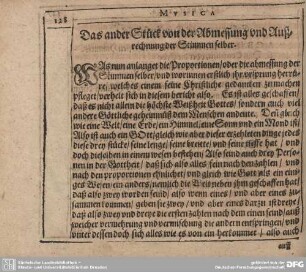 128
MVSICA
Das ander Stück von der Abmessung vnd Auß-
rechnung der Stimmen selber.
WAs nun anlanget die Proportionen/ oder die abmessung der
Stimmen selber/ vnd worinnen erstlich ihr vrsprung herrü-
re, welches einem seine Christliche gedancken zumachen
pfleget, verhelt sich in diesem bericht also. Es ist alles geschaffen/
daß es nicht allein die höchste Weißheit Gottes/ sondern auch viel
andere Göttliche geheimnuß dem Menschen andeute. Den gleich
wie eine Welt/ eine Erde/ ein Himmel/ eine Sonn vnd ein Mond ist/
Also ist auch ein GOtt/ gleich wie aber dieser erzehleten dinge jedes
diese drey stück/ seine lenge/ seine breite/ vnd seine tieffe hat / vnd
doch diese beiden in einem wesen bestehen/ Also seind auch drey Perso-
nen in der Gottheit/ daß sich also alles
nach den proportionen ehnlichet/ vnd gleich wie Gott als ein eini-
ges Wesen/ ein anders/ nemlich die
daß also zwey worden seind/ also wenn eines / vnd aber eines zu-
sammen kommen/ geben sie zwey / vnd aber eines darzu ist dreye/
daß also zwey vnd dreye die ersten zahlen nach dem einen seind/ auß
welcher vermehrung vnd vermischung die andern entspringen/ vnd
vnter dessen doch sich alles wie es von ein herkommet / also auch